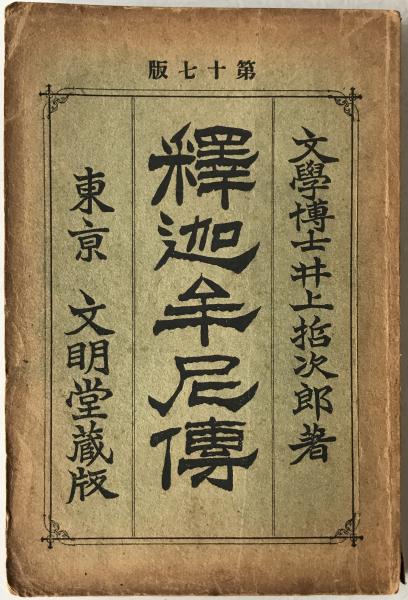 第十七版
文學博士井上哲次郎著
釋迦牟尼傳
東京 文明堂蔵版